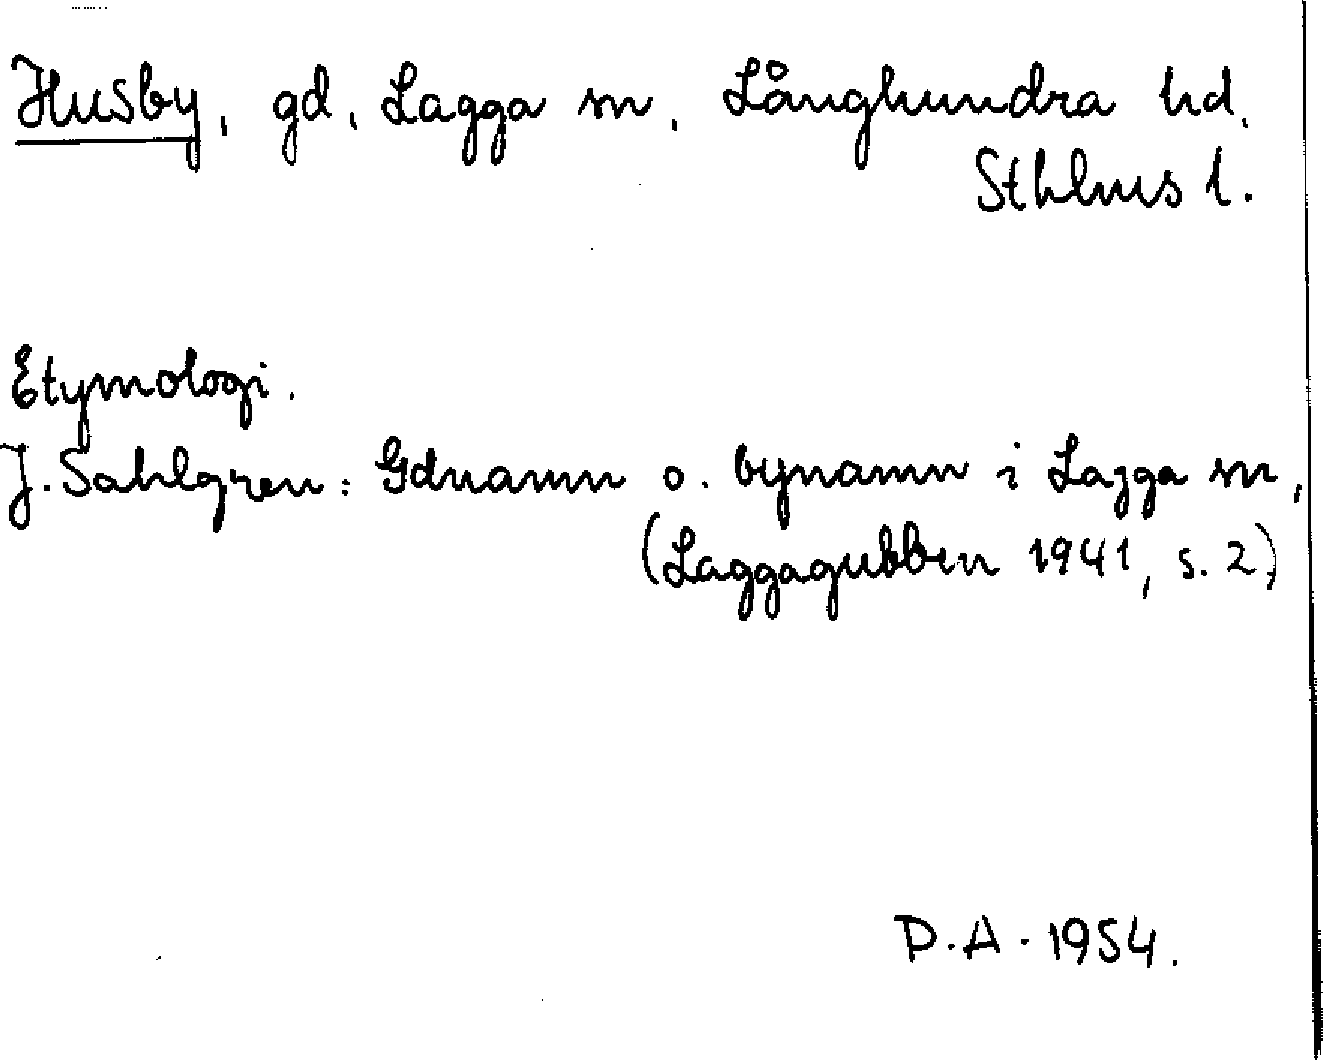 Husby, gd, Lagga sn, Långhundra hd,
Sthlms l.
Etymologi.
J. Sahlgren: Gdnamn o. bynamn i Lagga sn,
(Laggagubben 1941, s. 2)
D.A. 1954.